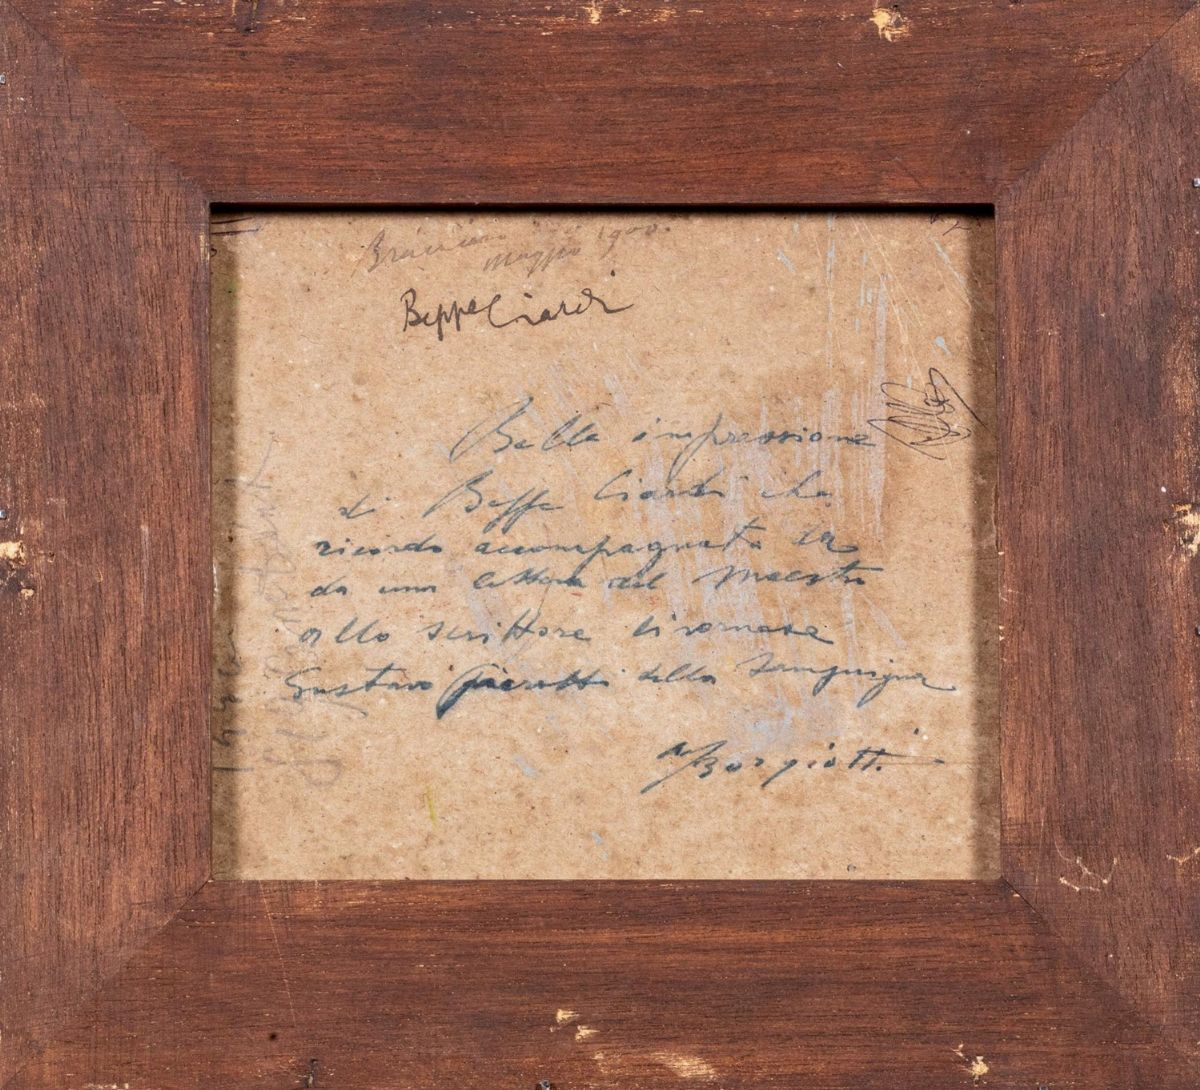 maggio 1900.
Beppe Ciardi
Bella impressione
di Beppe Ciardi che
ricordo accompagnata
da una lettera del Maestro
allo scrittore livornese
Gustavo Pierotti della Sanguigna
M Borgiotti